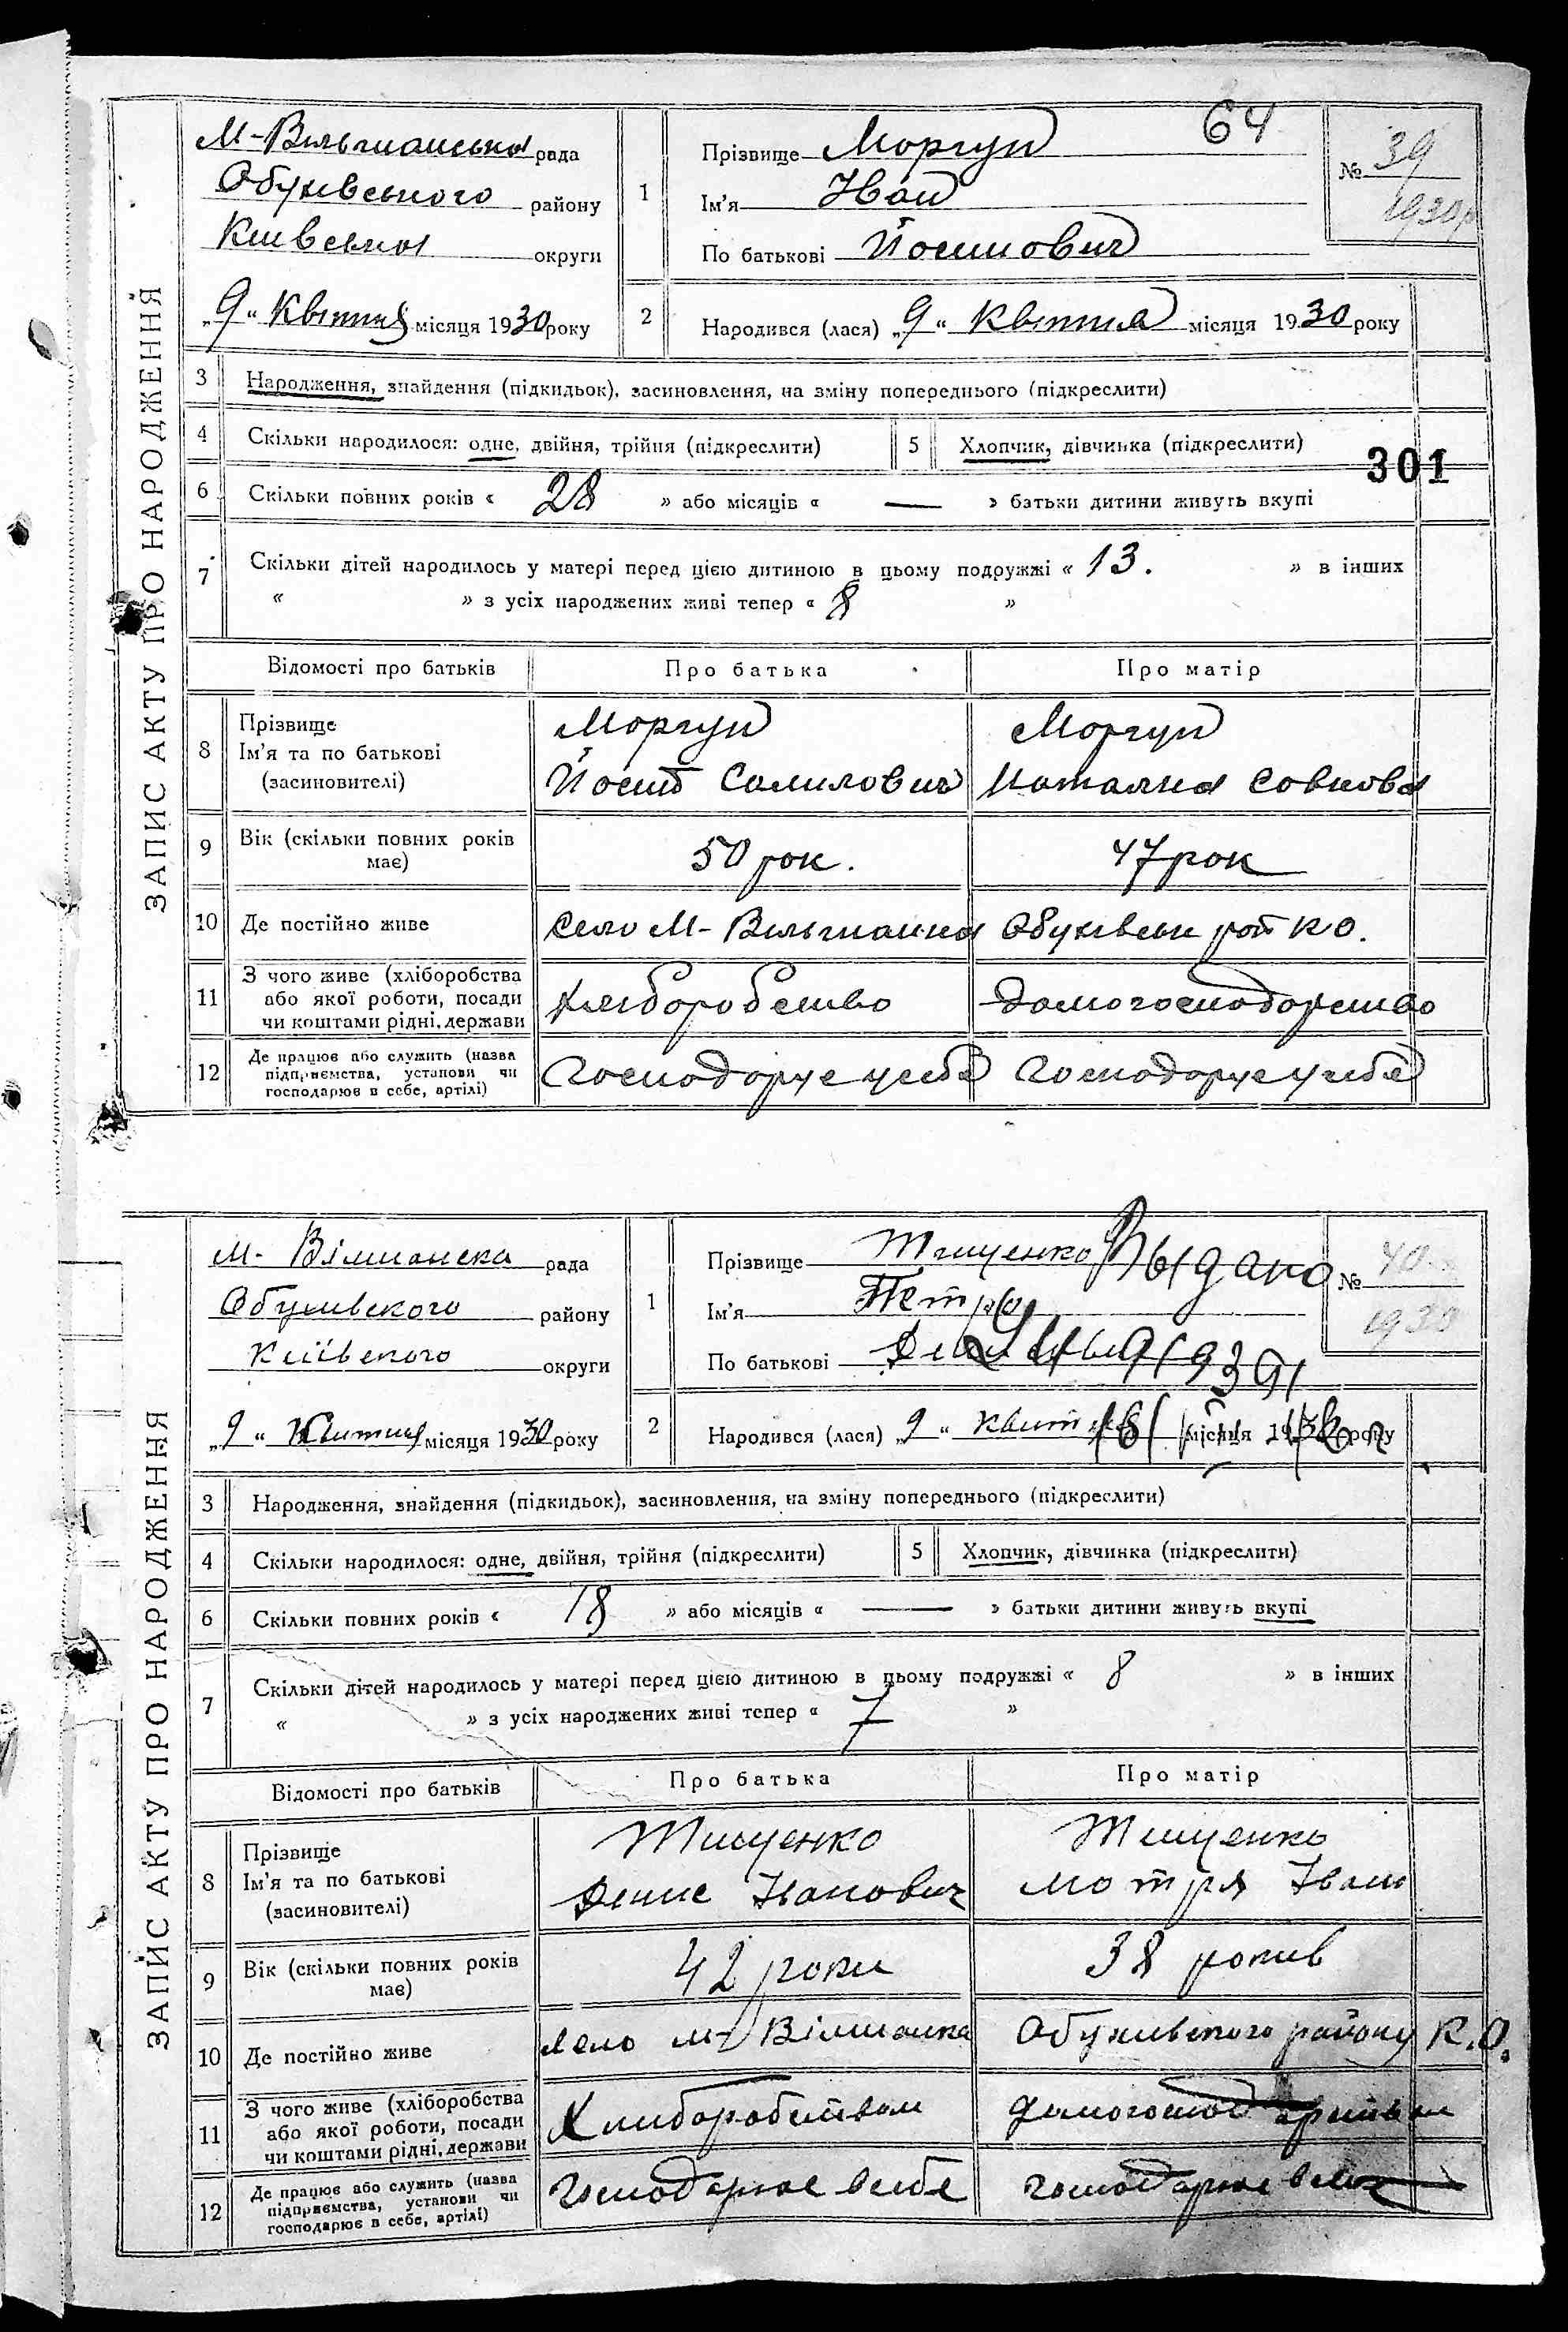 ЗАПИС АКТУ ПРО НАРОДЖЕННЯ
М-Вільшанська рада
Обухівського району
Київська округи
„9“ Квітня місяця 1930 року
64
1 Прізвище Моргун
Ім’я Іван
По батькові Йосипович
№ 39
1930р
2 Народився (лася) „9“ Квітня місяця 1930 року
3 Народження, знайдення (підкидьок), засиновлення, на зміну попереднього (підкреслити)
4 Скільки народилося: одне, двійня, трійня (підкреслити) 5 Хлопчик, дівчинка (підкреслити)
301
6 Скільки повних років « 28 » або місяців « — » батьки дитини живуть вкупі
7 Скільки дітей народилось у матері перед цією дитиною в цьому подружжі « 13. » в інших
« » з усіх народжених живі тепер « 8 »
Відомості про батьків Про батька Про матір
8 Прізвище Моргун Моргун
Ім’я та по батькові Йосип Самилович Наталка Совкова
(засиновителі)
9 Вік (скільки повних років має) 50 рок. 47 рок
10 Де постійно живе село М-Вільшанка Обухівськ рай К О.
11 З чого живе (хліборобства або якої роботи, посади чи коштами рідні, держави Хліборобство Домогосподарство
12 Де працює або служить (назва підприємства, установи чи господарює в себе, артілі) Господорує у себе Господорує у себе
ЗАПИС АКТУ ПРО НАРОДЖЕННЯ
м- Вілшанска рада
Обухивского району
Київского округи
„9“ Квитня місяця 1930 року
1 Прізвище Тищенко Выдано
Ім’я Петро
По батькові
№ 40
1930
2 Народився (лася) „9“ Квитня місяця 1930 року
3 Народження, знайдення (підкидьок), засиновлення, на зміну попереднього (підкреслити)
4 Скільки народилося: одне, двійня, трійня (підкреслити) 5 Хлопчик, дівчинка (підкреслити)
6 Скільки повних років « 18 » або місяців « — » батьки дитини живуть вкупі
7 Скільки дітей народилось у матері перед цією дитиною в цьому подружжі « 8 » в інших
« » з усіх народжених живі тепер « 7 »
Відомості про батьків Про батька Про матір
8 Прізвище Тищенко Тищенко
Ім’я та по батькові Денис Іванович Мотря Іван
(засиновителі)
9 Вік (скільки повних років має) 42 роки 38 рокив
10 Де постійно живе село м- Вілшанка Обухивского району К. О.
11 З чого живе (хліборобства або якої роботи, посади чи коштами рідні, держави Хлиборобством домогосподарством
12 Де працює або служить (назва підприємства, установи чи господарює в себе, артілі) господарює в себе господарює в себе